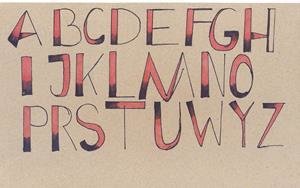 ABCDEFGH
IJKLMNO
PRSTUWYZ